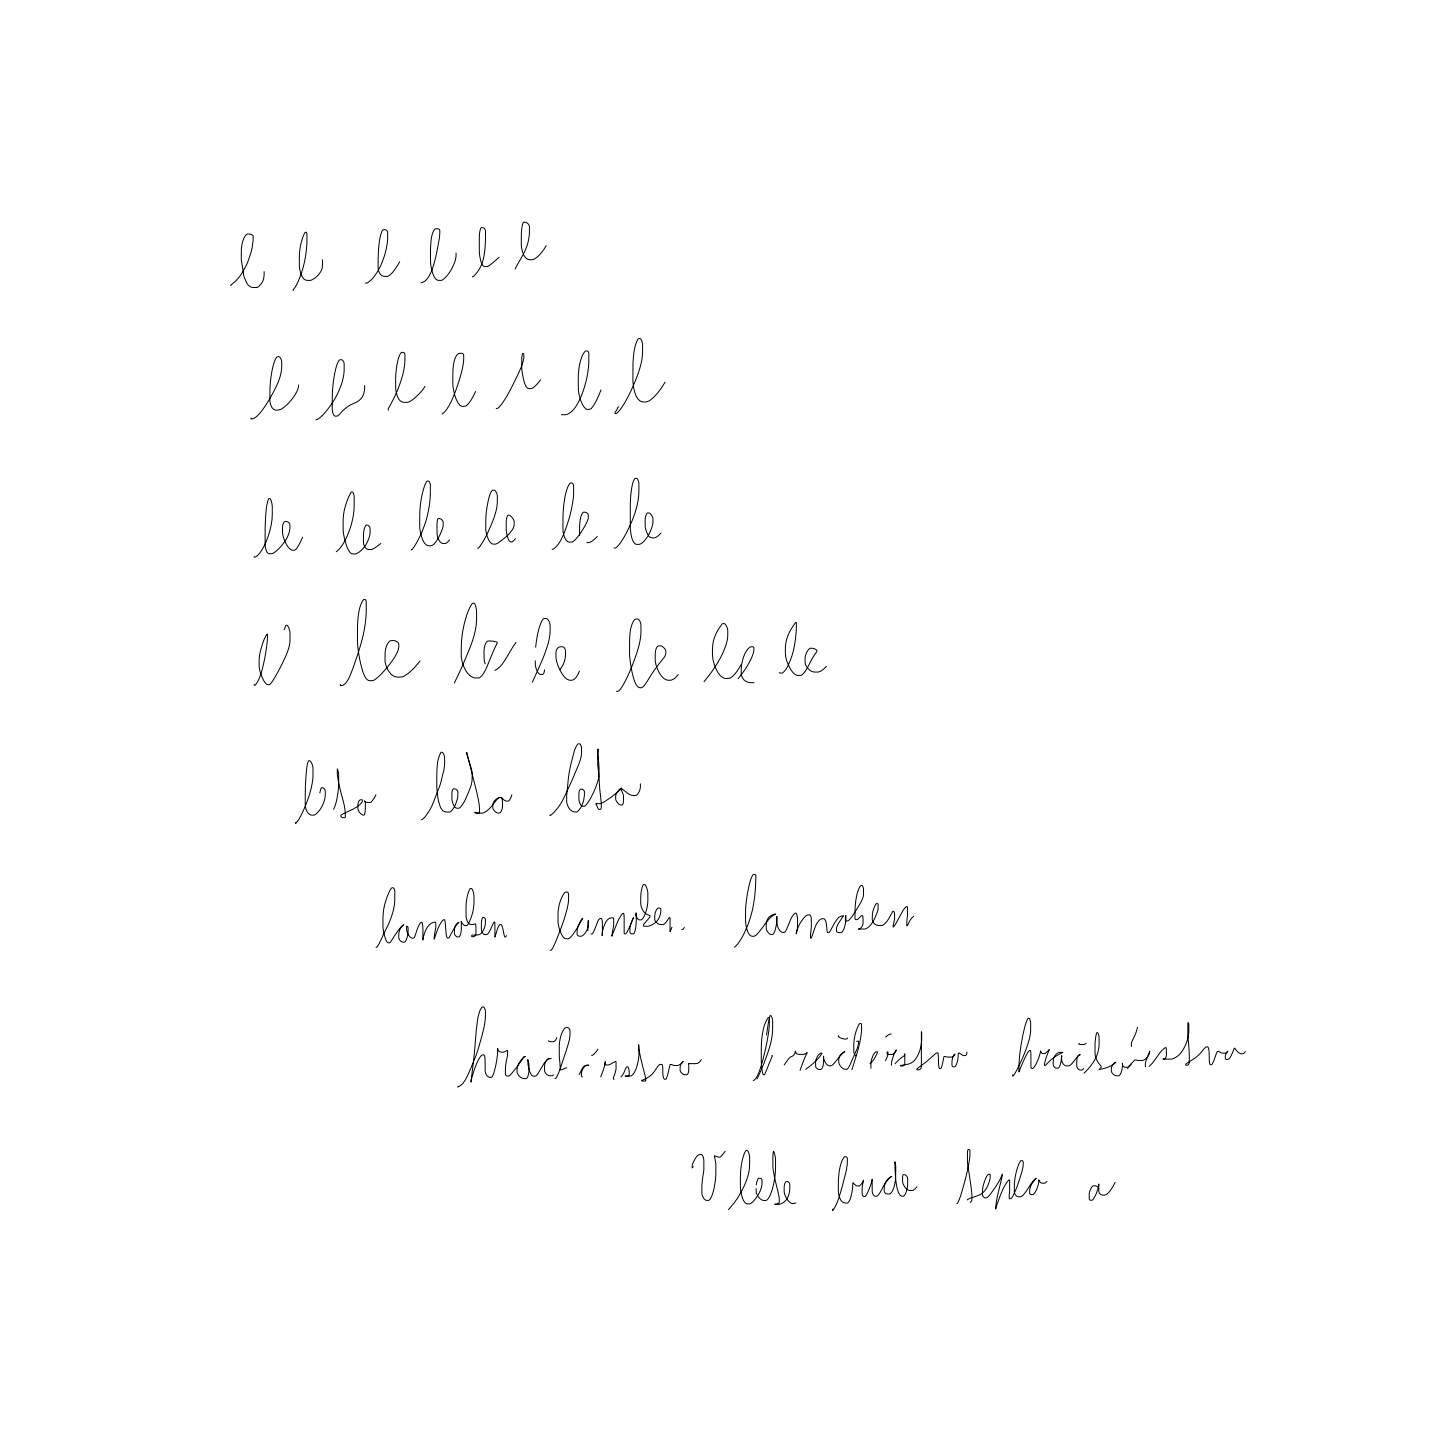 l l l l l l
l l l l l l l
le le le le le le
le le le le le le le
leto leto leto
lamoken lamoken lamoken
hračkárstvo hračkárstvo hračkárstvo
V lete bude teplo a